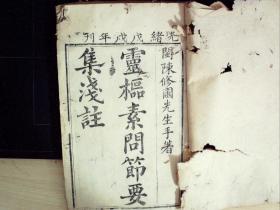 光緒戊戌年刊
閩陳修園先生手著
靈樞素問節要
集淺註